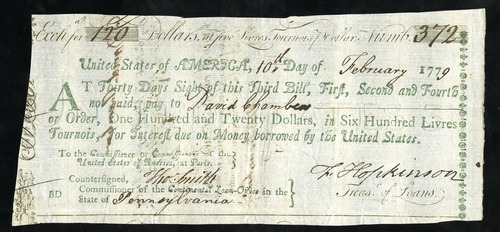 Exch. for 120 Dollars, at five Livres Tournois, per Dollar. Numb. 372
United States of AMERICA, 10th Day of February 1779
AT Thirty Days Sight of this Third Bill, First, Second and Fourth
not paid, pay to David Chambers
or Order, One Hundred and Twenty Dollars, in Six Hundred Livres
Tournois, for Interest due on Money borrowed by the United States.
To the Commissioner or Commissioners of the
United States of America, at Paris.
Countersigned, Tho. Smith
Commissioner of the Continental Loan-Office in the
State of Pennsylvania
F. Hopkinson
Treas. of Loans.